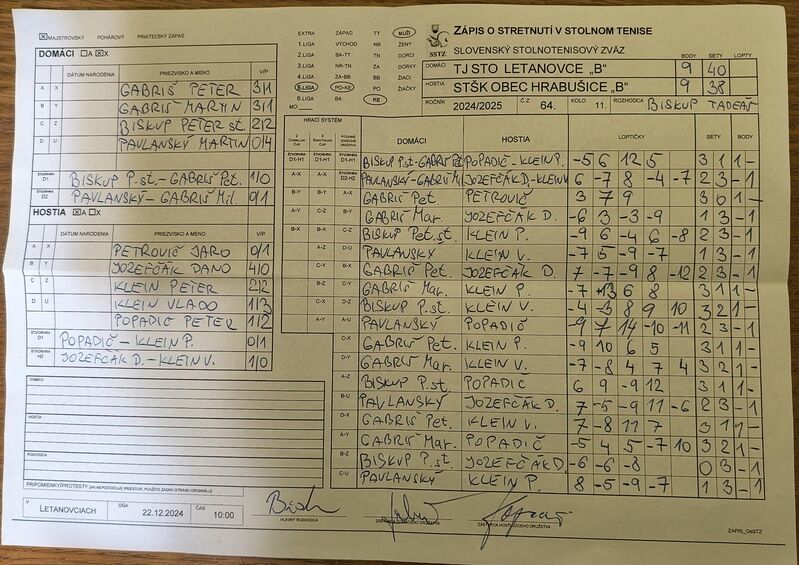 ☒ MAJSTROVSKÝ POHÁROVÝ PRIATEĽSKÝ ZÁPAS
DOMÁCI ☐ A ☒ X
DÁTUM NARODENIA PRIEZVISKO A MENO V/P
A X GABRIŠ PETER 3/1
B Y GABRIŠ MARTIN 3/1
C Z BISKUP PETER st. 2/2
D U PAVLANSKÝ MARTIN 0/4
ŠTVORHRA D1 BISKUP P.st. - GABRIŠ Pet. 1/0
ŠTVORHRA D2 PAVLANSKÝ - GABRIŠ Mil. 0/1
HOSTIA ☒ A ☐ X
DÁTUM NARODENIA PRIEZVISKO A MENO V/P
A X PETROVIČ JARO 0/1
B Y JOZEFČÁK DANO 4/0
C Z KLEIN PETER 2/2
D U KLEIN VLADO 1/3
POPADIČ PETER 1/2
POPADIČ - KLEIN P. 0/1
ŠTVORHRA H2 JOZEFČÁK D. - KLEIN V. 1/0
DOMÁCI
HOSTIA
ROZHODCA
PRIPOMIENKY/PROTESTY (AK NEPOSTAČUJE PRIESTOR, POUŽITE ZADNÚ STRANU ORIGINÁLU)
V LETANOVCIACH DŇA 22.12.2024 ČAS 10:00
HLAVNÝ ROZHODCA
ZÁSTUPCA HOSŤUJÚCEHO DRUŽSTVA
ZAPIS_OeSTZ
EXTRA ZÁPAD TT MUŽI
1.LIGA VÝCHOD NR ŽENY
2.LIGA BA-TT TN DORCI
3.LIGA NR-TN ZA DORKY
4.LIGA ZA-BB BB ŽIACI
5.LIGA PO-KE PO ŽIAČKY
MO BA KE
SSTZ
ZÁPIS O STRETNUTÍ V STOLNOM TENISE
SLOVENSKÝ STOLNOTENISOVÝ ZVÄZ
BODY SETY LOPTY
DOMÁCI TJ STO LETANOVCE „B" 9 40
HOSTIA STŠK OBEC HRABUŠICE „B" 9 38
ROČNÍK 2024/2025 Č.Z. 64. KOLO 11. ROZHODCA BISKUP TADEÁŠ
HRACÍ SYSTÉM DOMÁCI HOSTIA LOPTIČKY SETY BODY
D1-H1 D1-H1 D1-H1 BISKUP P.st-GABRIŠ Pet. POPADIČ-KLEIN P. -5 6 12 5 3 1 1 -
A-X A-X D2-H2 PAVLANSKÝ-GABRIŠ Mil. JOZEFČÁK D.-KLEIN V. 6 -7 8 -4 -7 2 3 - 1
B-Y B-Y A-X GABRIŠ Pet. PETROVIČ 3 7 9 3 0 1 -
A-Y C-Z B-Y GABRIŠ Mar. JOZEFČÁK D. -6 3 -3 -9 1 3 - 1
B-X B-X C-Z BISKUP Pet.st. KLEIN P. -9 6 -4 6 -8 2 3 - 1
A-Z D-U PAVLANSKÝ KLEIN V. -7 5 -9 -7 1 3 - 1
C-Y B-X GABRIŠ Pet. JOZEFČÁK D. 7 -7 -9 8 -12 2 3 - 1
B-Z C-Y GABRIŠ Mar. KLEIN P. -7 13 6 8 3 1 1 -
C-X D-Z BISKUP P.st. KLEIN V. -4 -3 8 9 10 3 2 1 -
A-Y A-U PAVLANSKÝ POPADIČ -9 7 14 -10 -11 2 3 - 1
C-X GABRIŠ Pet. KLEIN P. -9 10 6 5 3 1 1 -
D-Y GABRIŠ Mar. KLEIN V. -7 -8 4 7 4 3 2 1 -
A-Z BISKUP P.st. POPADIČ 6 9 -9 12 3 1 1 -
B-U PAVLANSKÝ JOZEFČÁK D. 7 -5 -9 11 -6 2 3 - 1
D-X GABRIŠ Pet. KLEIN V. 7 -8 11 7 3 1 1 -
A-Y GABRIŠ Mar. POPADIČ -5 4 5 -7 10 3 2 1 -
B-Z BISKUP P.st. JOZEFČÁK D. -6 -6 -8 0 3 - 1
C-U PAVLANSKÝ KLEIN P. 8 -5 -9 -7 1 3 - 1